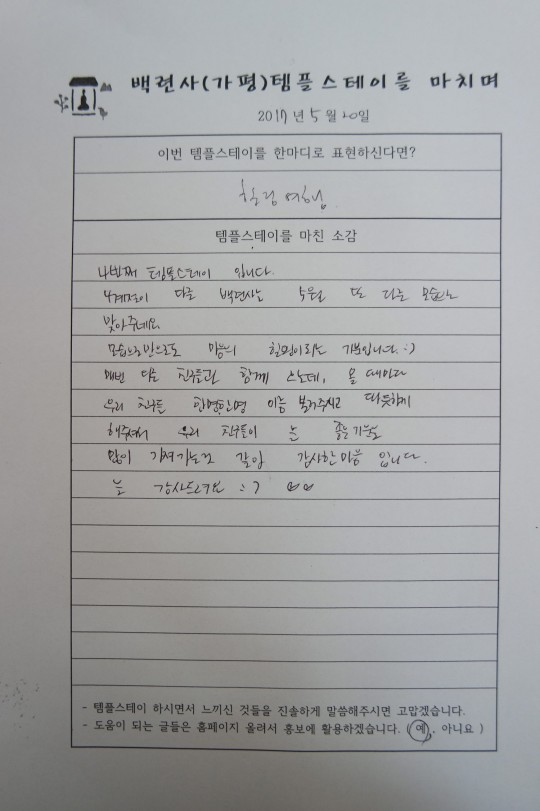 백련사(가평)템플스테이를 마치며
2017년 5월 20일
이번 템플스테이를 한마디로 표현하신다면?
힐링 여행
템플스테이를 마친 소감
4번째 템플스테이 입니다.
4계절이 다른 백련사는 5월은 또 다른 모습으로
맞아주네요
모습으로만으로도 마음의 힐링이되는 기분입니다. :)
매번 다른 친구들과 함께 오는데, 올 때마다
우리 친구들 한명한명 이름 불러주시고 따듯하게
해주셔서 우리 친구들이 늘 좋은기운을
많이 가져가는것 같아 감사한마음 입니다.
늘 감사드려요 :) ♡♡
- 템플스테이 하시면서 느끼신 것들을 진솔하게 말씀해주시면 고맙겠습니다.
- 도움이 되는 글들은 홈페이지 올려서 홍보에 활용하겠습니다. ( 예 , 아니요 )